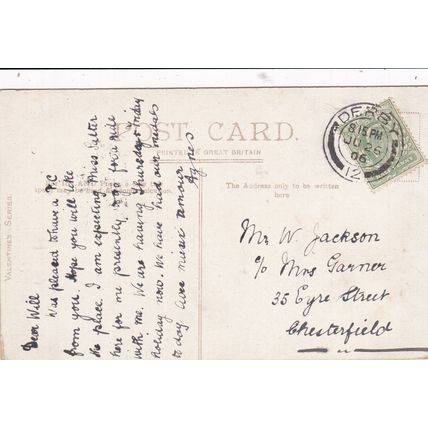 POST CARD.
PRINTED IN GREAT BRITAIN
The Address only to be written
here
VALENTINES SERIES
DERBY
8.15 PM
JU 26
06
12
Dear Will
Was pleased to have a P.C
from you Hope you will like
the place. I am expecting Miss
here for me presently to go for a ride
with me. We are having Thursday & Friday
holiday now. We have had our
to day
Agnes
Mr W. Jackson
c/o Mrs Garner
35 Eyre Street
Chesterfield